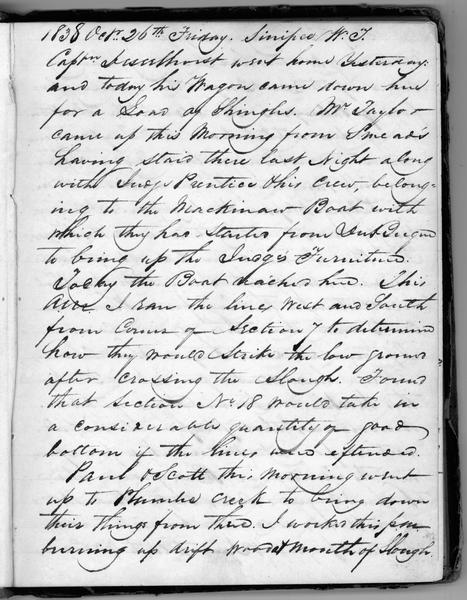 1838 Oct. 26th Friday. Sinipee W. T
Captn went home Yesterday.
and today his Wagon came down here
for a Load of Shingles. Mr Taylor
came up this Morning from Smead's
having staid there last Night along
with Judge Prentice & his Crew, belong-
ing to the Mackinaw Boat with
which they has started from
to bring up the Judge's Furniture.
Today the Boat reached here. This
I ran the lines West and South
from Corner of Section 7 to determine
how they would strike the low ground
after crossing the Slough. Found
that Section No. 18 would take in
a considerable quantity of good
bottom if the lines were extended.
Paul & Scott this morning went
up to Plumbe Creek to bring down
their things from there. I worked this
burning up drift wood at Mouth of Slough.